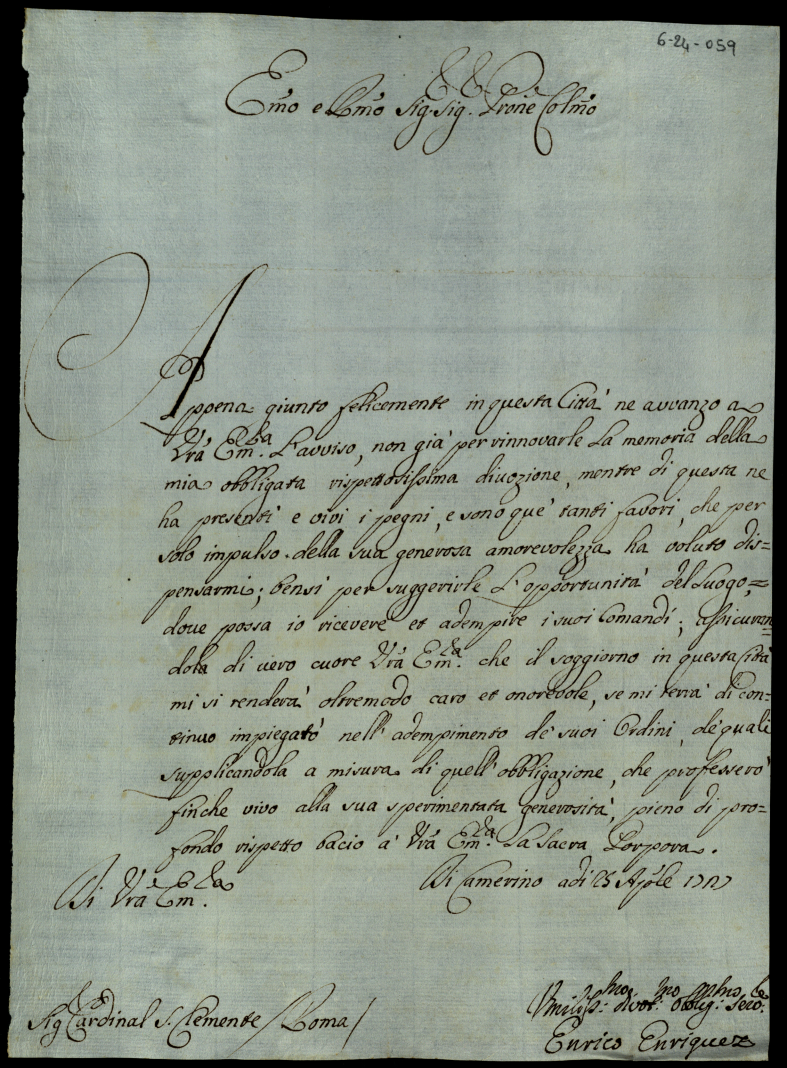 6-24-059
Em̃o e Rm̃o Sig.r Sig.r Prone Colm̃o
Appena giunto felicemente in questa Città ne avvanzo a
Vr̃a Em.za l'avviso, non già per rinnovarle la memoria della
mia obbligata rispettosissima divozione, mentre di questa ne
ha presenti e vivi i pegni, e sono que' tanti favori, che per
solo impulso della sua generosa amorevolezza ha voluto dis=
pensarmi; bensi per suggerirle l'opportunità del luogo,=
dove possa io ricevere et adempire i suoi Comandi; assicuran=
dola di vero cuore Vr̃a Em.za che il soggiorno in questa Città
mi si renderà oltremodo caro et onorevole, se mi terrà di con=
tinuo impiegato nell'adempimento de' suoi Ordini, de' quali
supplicandola a misura di quell'obbligazione, che professerò
finche vivo alla sua sperimentata generosità, pieno di pro=
fondo rispetto bacio a Vr̃a Em.za la Sacra Porpora.
Di Vr̃a Em.za
Di Camerino adi 25 Aple
Sig.r Cardinal S. Clemente / Roma /
Umiliss.mo divot.mo obblig.mo serv.re
Enrico Enriquez